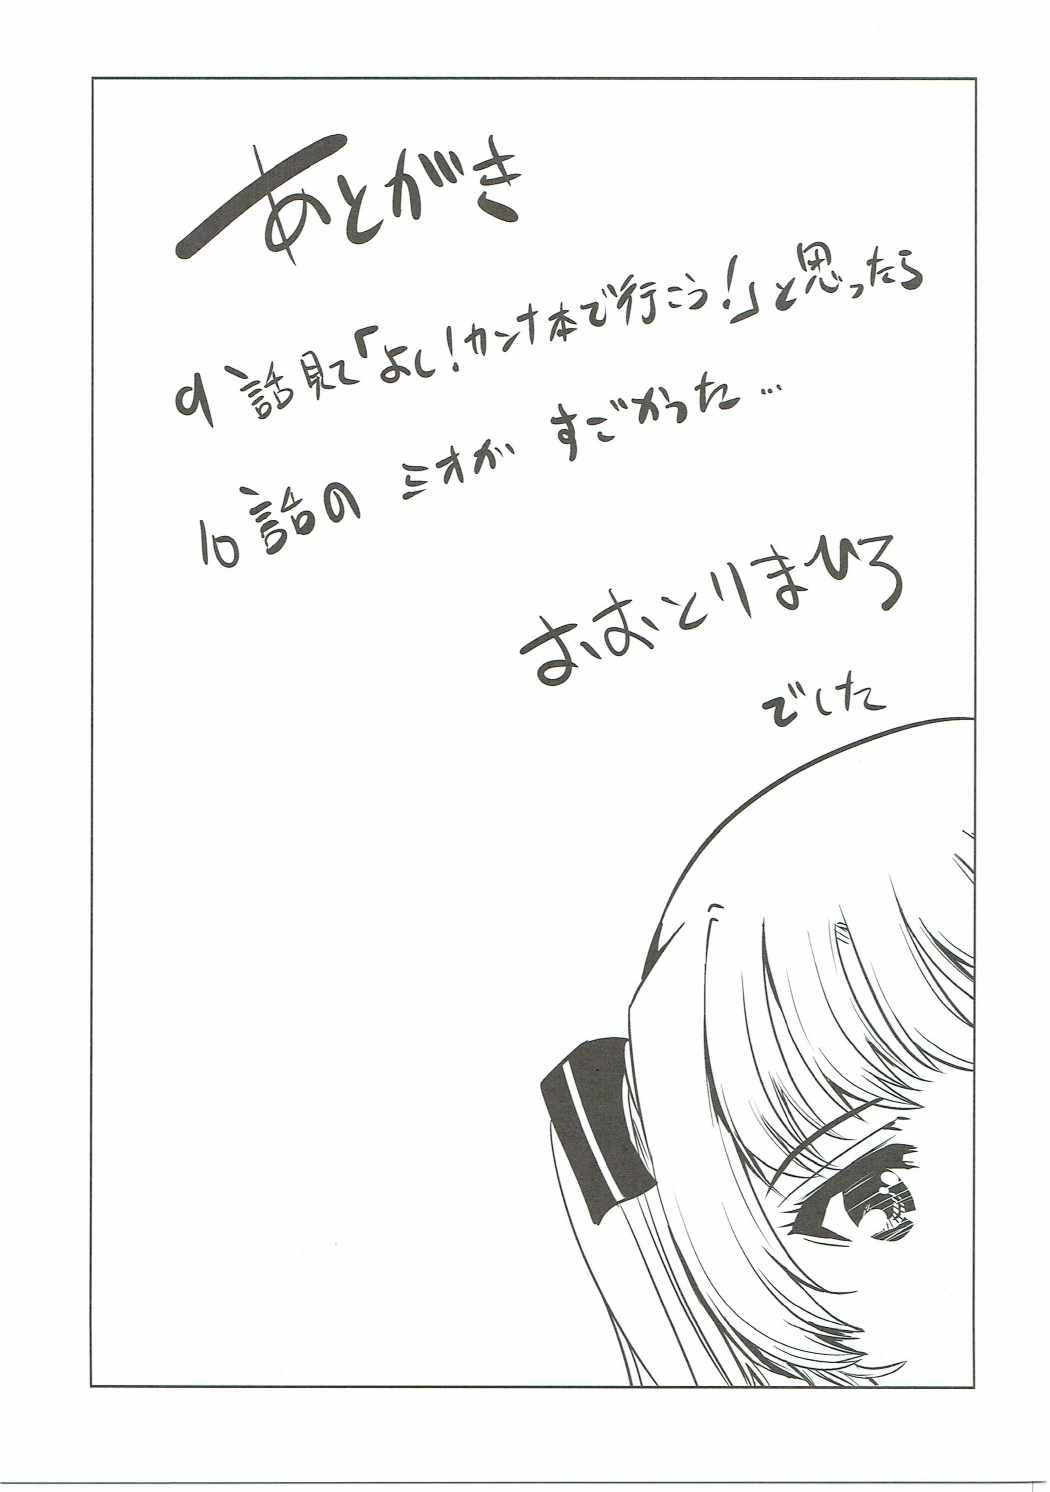 あとがき
9話見て「よし!カンナ本で行こう!」と思ったら
10話の ミオが すごかった…
おおとりまひろ
でした